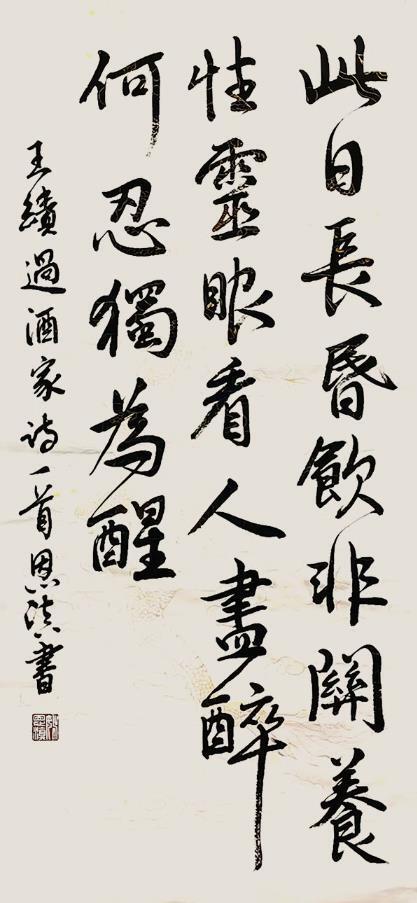 此日長昏飲非關養
性靈眼看人盡醉
何忍獨為醒
王績過酒家诗一首恩書